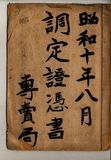 昭和十年八月
調定證憑書
專賣局